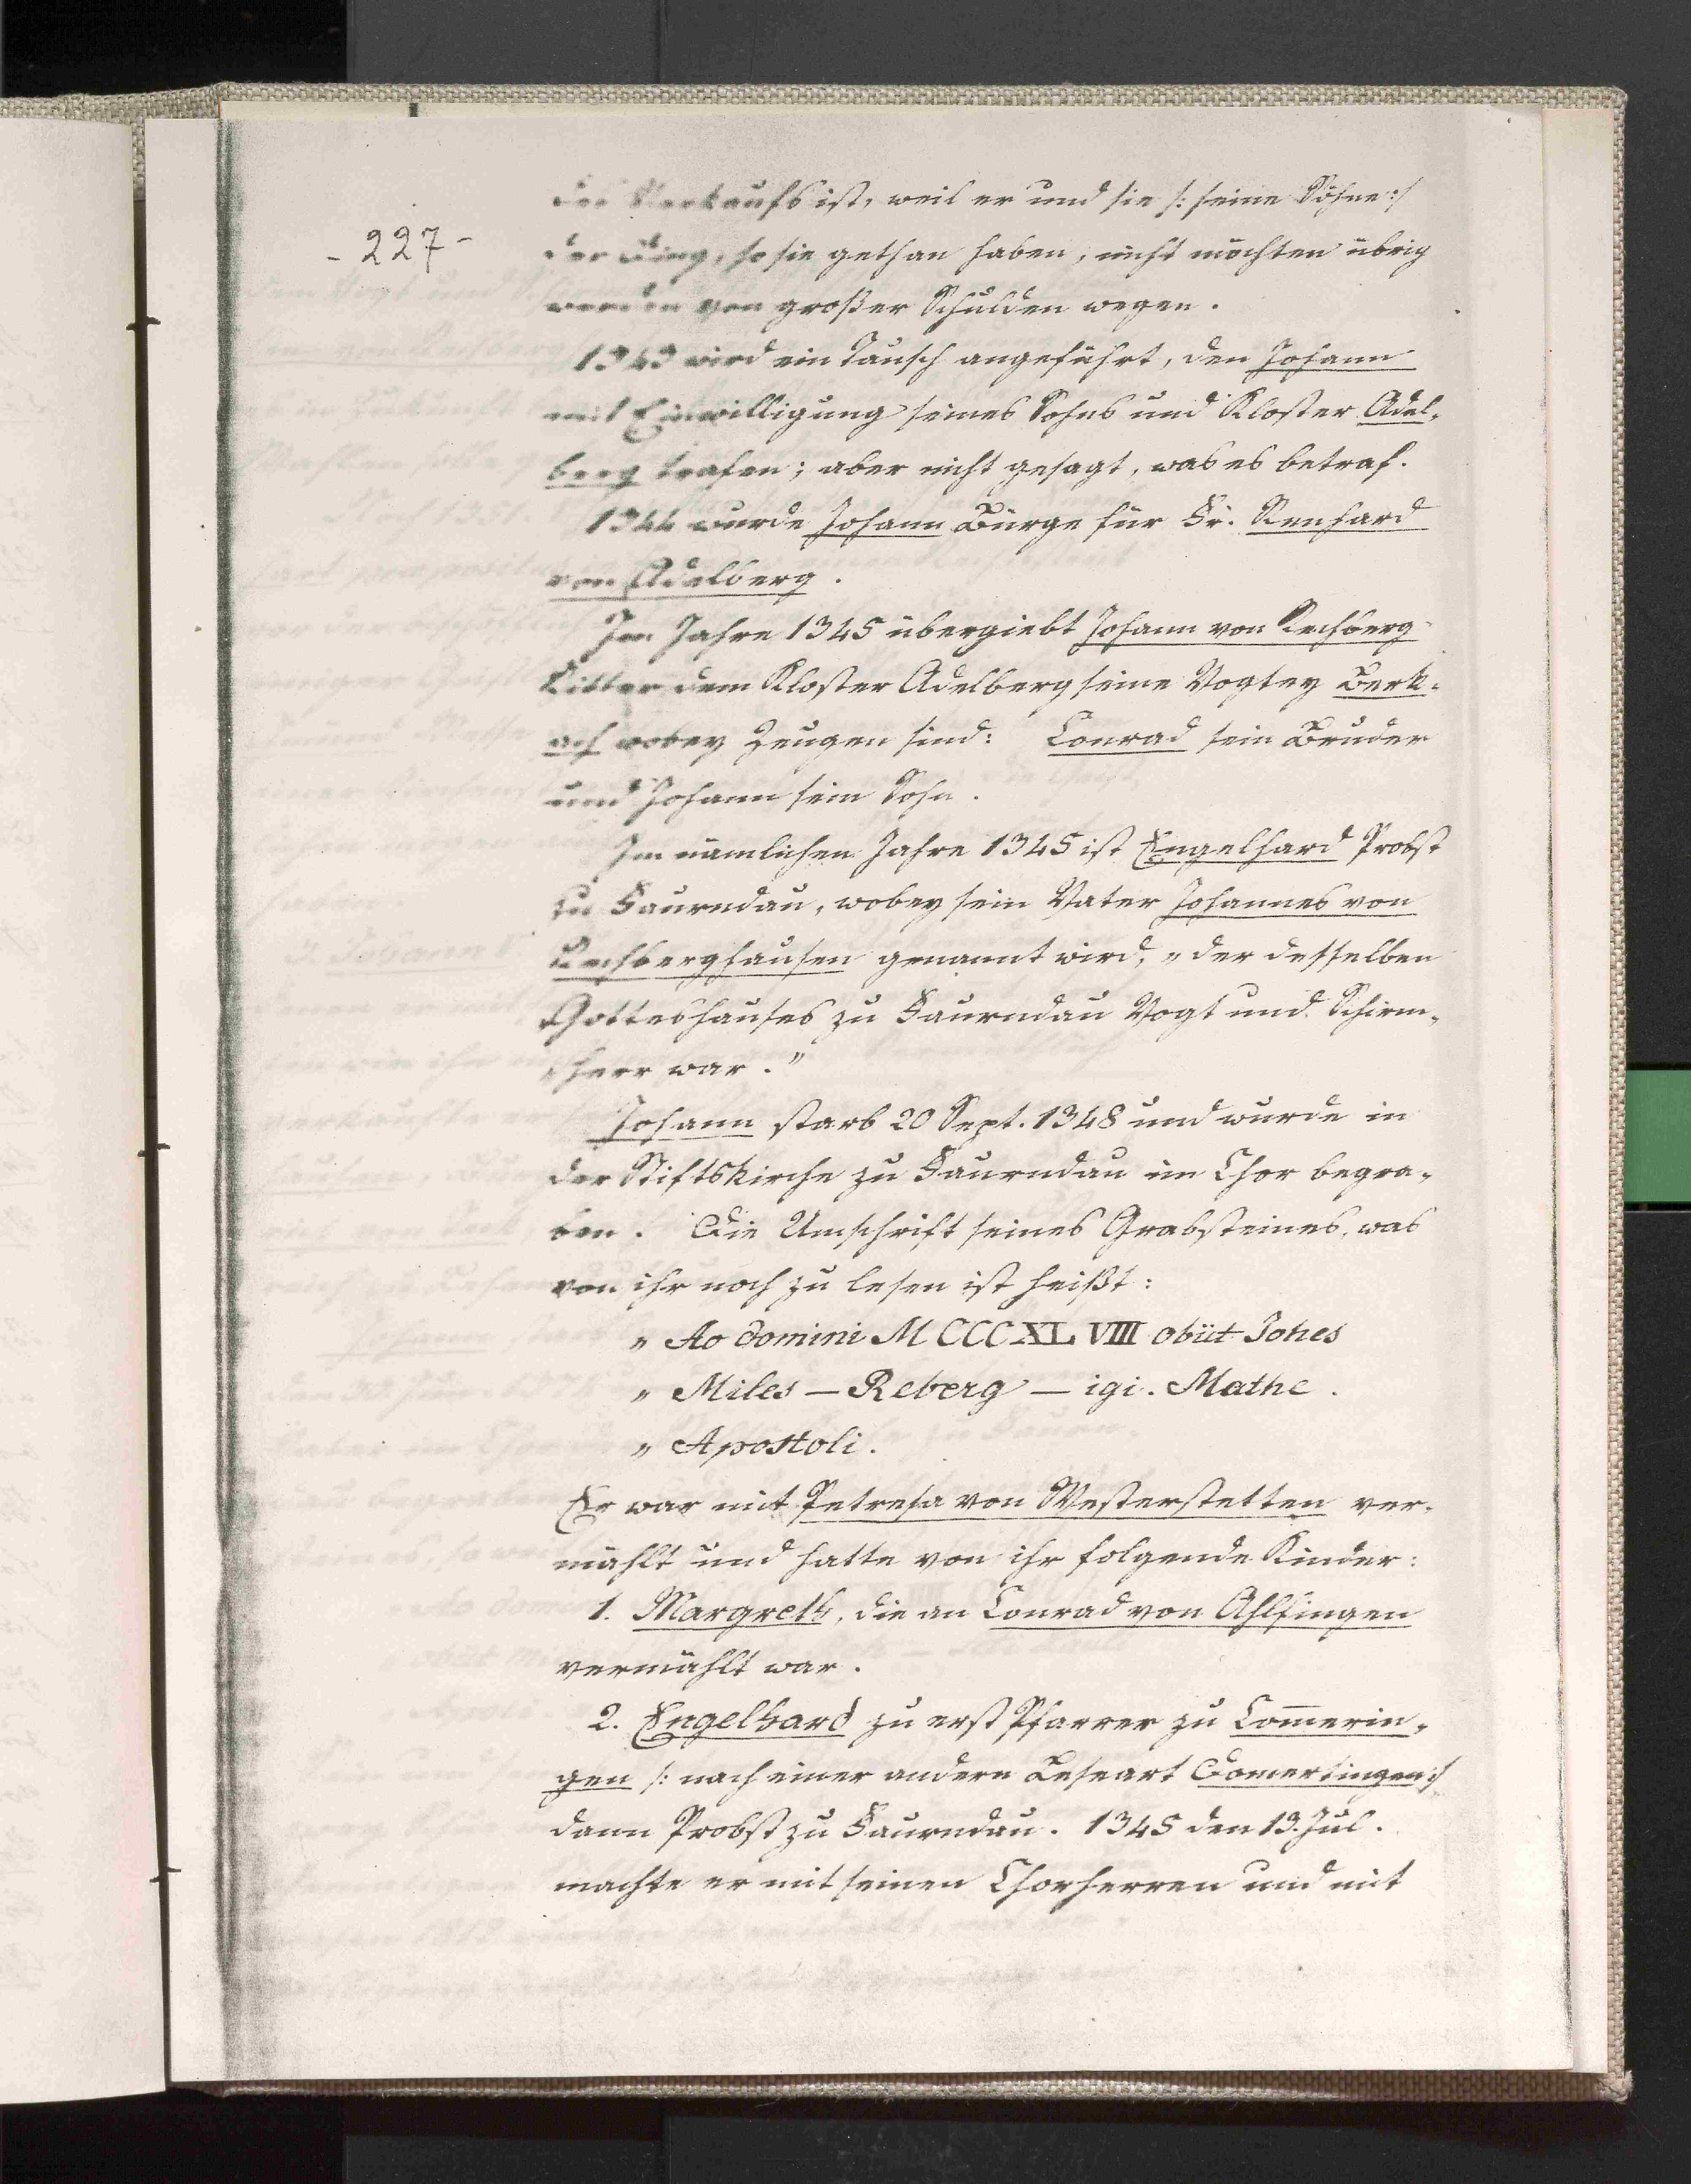 - 227 -
des Verkaufs ist, weil er und sie /: seine Söhne :/
der Ding, so sie gethan haben, nicht möchten übrig
werden von großer Schulden wegen.
1343 wird ein Tausch angeführt, den Johann
mit Einwilligung seines Sohns und Kloster Adel-
berg trafen; aber nicht gesagt, was es betraf.
1344 wurde Johann Bürge für Fr. Renhard
von Adelberg.
Im Jahre 1345 übergiebt Johann von Rechberg
Ritter dem Kloster Adelberg seine Vogtey Berk-
ach wobey Zeugen sind: Conrad sein Bruder
und Johann sein Sohn.
Im nämlichen Jahre 1345 ist Engelhard Probst
zu Faurndau, wobey sein Vater Johannes von
Rechberghausen genannt wird, „der desselben
Gotteshauses zu Faurndau Vogt und Schirm-
„herr war."
Johann starb 20 Sept. 1348 und wurde in
der Stiftskirche zu Faurndau im Chor begra-
ben. Die Umschrift seines Grabsteines, was
von ihr noch zu lesen ist heißt:
„ Ao domini M CCC XL VIII obiit Johes
„ Miles — Reberg — igi. Mathe.
„ Apostoli.
Er war mit Petresa von Westerstetten ver-
mählt und hatte von ihr folgende Kinder:
1. Margreth, die an Conrad von Ahlfingen
vermählt war.
2. Engelhard zu erst Pfarrer zu Com̅erin-
gen /: nach einer andern Leseart Domertingen :/
dann Probst zu Faurndau. 1345 den 13. Jul.
machte er mit seinen Chorherren und mit